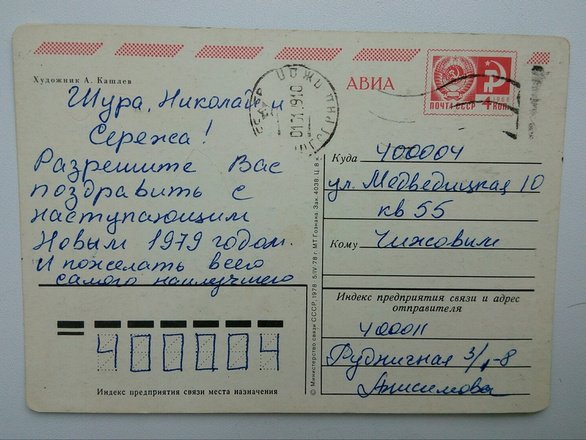 Художник А. Кашлев
Шура, Николай и
Сережа!
Разрешите Вас
поздравить с
наступающим
Новым 1979 годом.
И пожелать всего
самого наилучшего
400004
Индекс предприятия связи места назначения
© Министерство связи СССР, 1978 5/IV-78 г. МТ Гознака. Зак. 4038. Ц. 8 к.
АВИА
ПОЧТА СССР 4 КОП
Куда 400004
ул. Медведицкая 10
кв 55
Кому Чижовым
Индекс предприятия связи и адрес
отправителя
400011
Рудничная 3/1-8
Анисимова